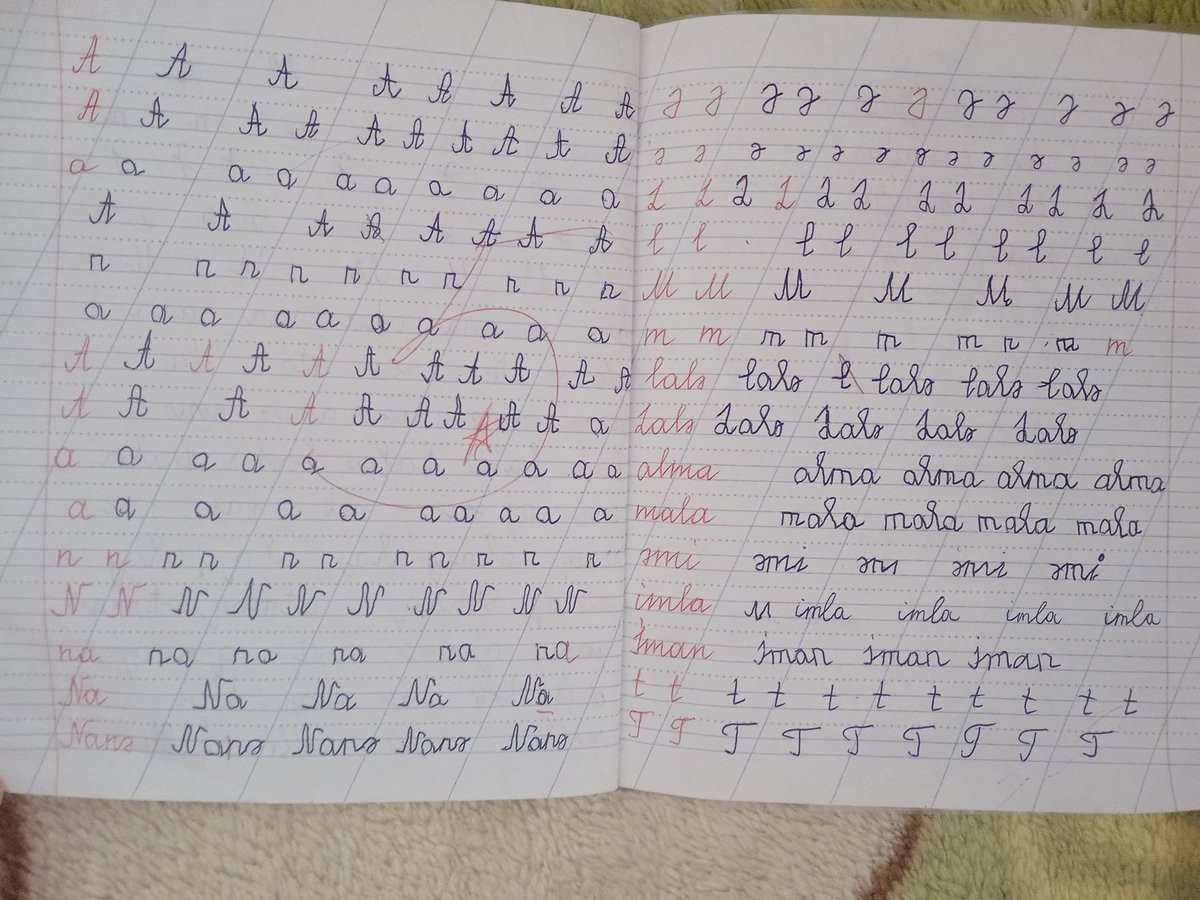 A A A A A A A A
A A A A A A A A A A
a a a a a a a a a a
A A A A A A A A
n n n n n n n n n n
a a a a a a a a a a
A A A A A A A A A A A
A A A A A A A A A a
a a a a a a a a a a a
a a a a a a a a a a
n n n n n n n n n n n
N N N N N N N N N N
na na na na na na
Na Na Na Na Na
Nanə Nanə Nanə Nanə Nanə
Ə Ə Ə Ə Ə Ə Ə Ə Ə Ə Ə
ə ə ə ə ə ə ə ə ə ə ə ə ə
L L L L L L L L L L L L
l l l l l l l l l l
M M M M M M M
m m m m m m n m m
lalə lalə l lalə lalə lalə
Lalə Lalə Lalə Lalə Lalə
alma alma alma alma alma
mala mala mala mala mala
əmi əmi əmi əmi əmi
imla imla imla imla imla
İman İman İman İman
t t t t t t t t t t t
T T T T T T T T T